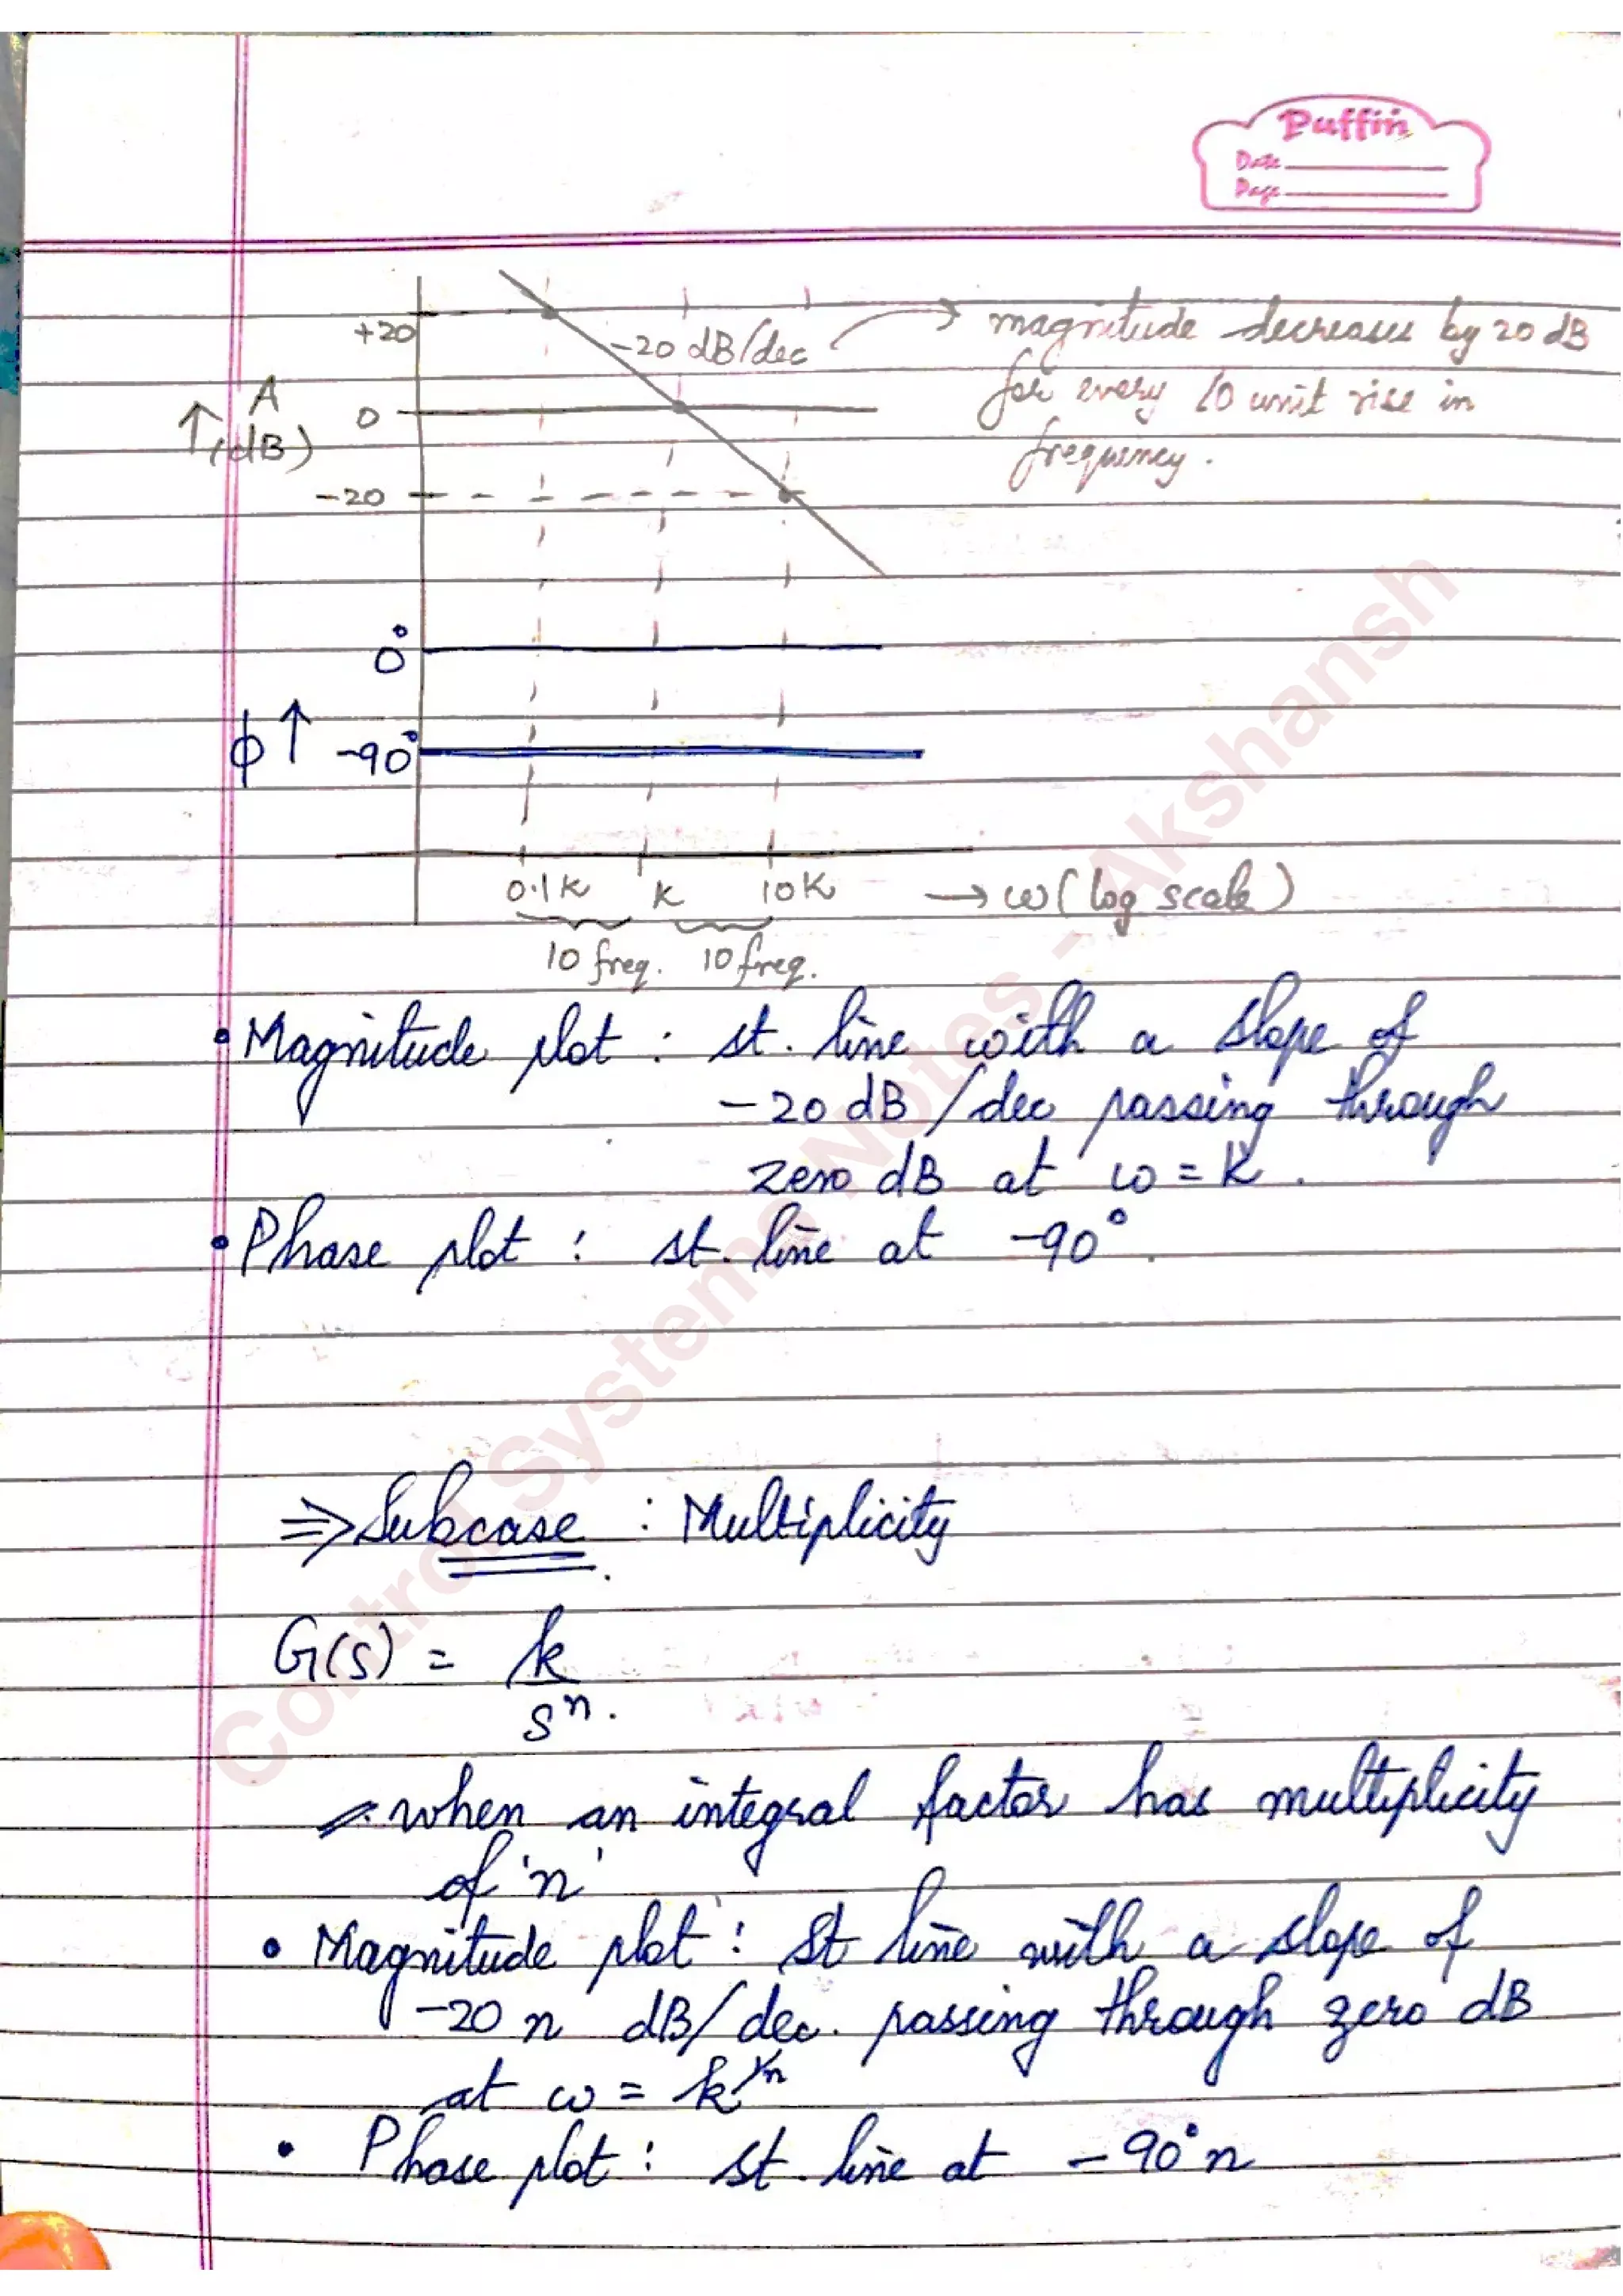 Puffin
Date
Page
+20
-20 dB/dec
magnitude decreases by 20 dB
for every 10 unit rise in
frequency.
A
↑(dB)
0
-20
0°
ϕ ↑ -90°
0.1K K 10K → ω (log scale)
10 freq. 10 freq.
• Magnitude plot : st. line with a slope of
-20 dB/dec passing through
zero dB at ω = K.
• Phase plot : st. line at -90°.
⇒ Subcase : Multiplicity
G(s) = k
sⁿ.
when an integral factor has multiplicity
of 'n'
• Magnitude plot : St line with a slope of
-20 n dB/dec. passing through zero dB
at ω = k^1/n
• Phase plot : st. line at -90°n
Control Systems Notes - Akshansh